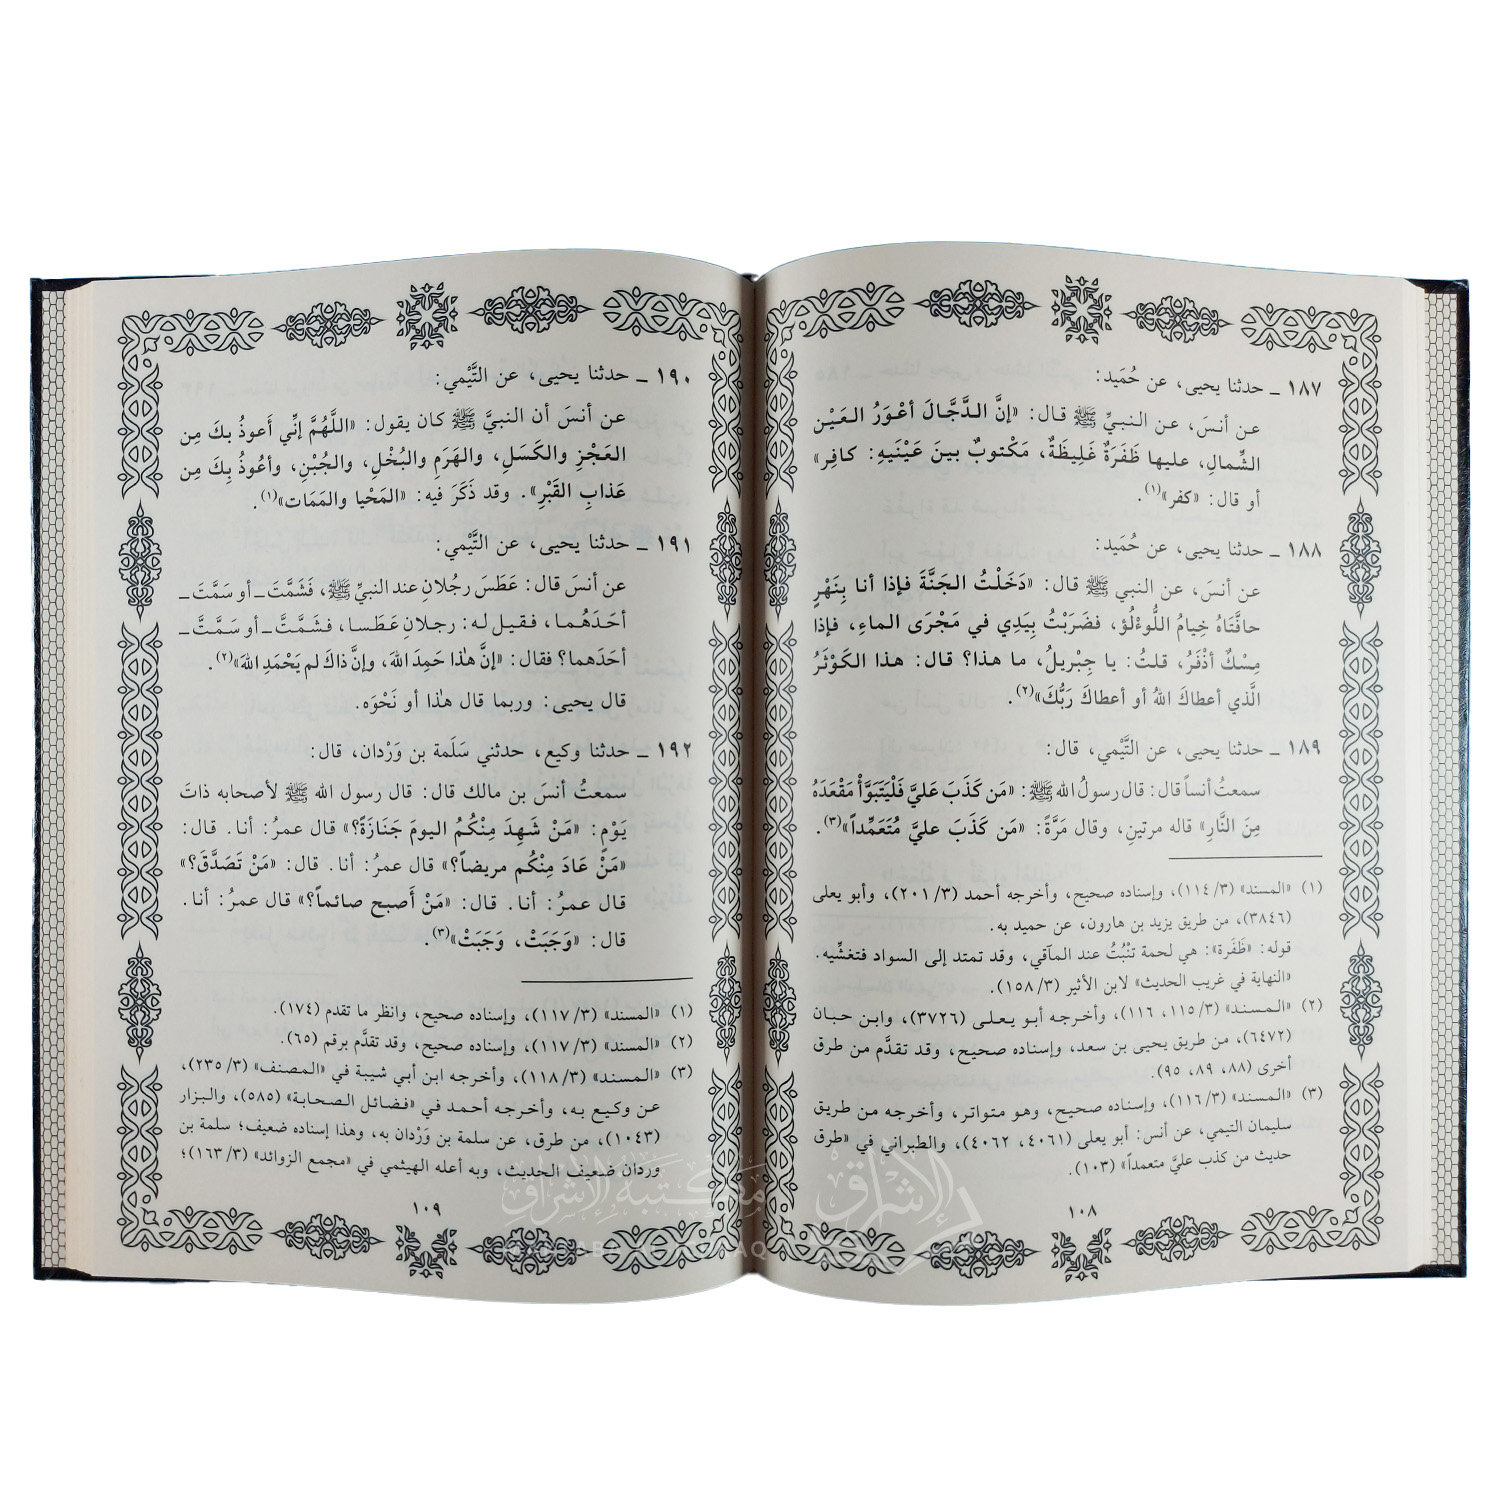 ١٨٧ ـ حدثنا يحيى، عن حُمَيد:
عن أنسَ، عن النبيِّ ﷺ قال: «إنَّ الدَّجَّالَ أعْوَرُ العَيْن
الشِّمالِ، عليها ظَفَرَةٌ غَلِيظَةٌ، مَكْتوبٌ بينَ عَيْنَيهِ: كافِر»
أو قال: «كفر»(١).
١٨٨ ـ حدثنا يحيى، عن حُمَيد:
عن أنسَ، عن النبي ﷺ قال: «دَخَلْتُ الجَنَّةَ فإذا أنا بِنَهْرٍ
حافَّتَاهُ خِيامُ اللُّوءْلُؤ، فضَرَبْتُ بِيَدِي في مَجْرَى الماءِ، فإذا
مِسْكٌ أذْفَرُ، قلتُ: يا جِبْريلُ، ما هذا؟ قال: هذا الكَوْثَرُ
الَّذي أعطاكَ اللهُ أو أعطاكَ رَبُّكَ»(٢).
١٨٩ ـ حدثنا يحيى، عن التَّيْمي، قال:
سمعتُ أنساً قال: قال رسولُ الله ﷺ: «مَن كَذَبَ عليَّ فَلْيَتَبَوَّأْ مَقْعَدَهُ
مِنَ النَّارِ» قاله مرتينِ، وقال مَرَّةً: «مَن كَذَبَ عليَّ مُتَعَمِّداً»(٣).
(١) «المسند» (١١٤/٣)، وإسناده صحيح، وأخرجه أحمد (٢٠١/٣)، وأبو يعلى
(٣٨٤٦)، من طريق يزيد بن هارون، عن حميد به.
قوله: «ظَفَرة»: هي لحمة تنْبُتُ عند المآقي، وقد تمتد إلى السواد فتغشِّيه.
«النهاية في غريب الحديث» لابن الأثير (١٥٨/٣).
(٢) «المسند» (١١٥/٣، ١١٦)، وأخرجه أبو يعلى (٣٧٢٦)، وابن حبان
(٦٤٧٢)، من طريق يحيى بن سعد، وإسناده صحيح، وقد تقدَّم من طرق
أخرى (٨٨، ٨٩، ٩٥).
(٣) «المسند» (١١٦/٣)، وإسناده صحيح، وهو متواتر، وأخرجه من طريق
سليمان التيمي، عن أنس: أبو يعلى (٤٠٦١، ٤٠٦٢)، والطبراني في «طرق
حديث من كذب عليَّ متعمداً» (١٠٣).
١٠٨
١٩٠ ـ حدثنا يحيى، عن التَّيْمي:
عن أنسَ أن النبيَّ ﷺ كان يقول: «اللَّهُمَّ إنِّي أَعوذُ بكَ مِن
العَجْزِ والكَسَلِ، والهَرَمِ والبُخْلِ، والجُبْنِ، وأعُوذُ بِكَ مِن
عَذابِ القَبْرِ». وقد ذَكَرَ فيه: «المَحْيا والمَمَات»(١).
١٩١ ـ حدثنا يحيى، عن التَّيْمي:
عن أنسَ قال: عَطَسَ رجُلانِ عند النبيِّ ﷺ، فَشَمَّتَ ـ أو سَمَّتَ ـ
أحَدَهُما، فقيل له: رجلانِ عَطَسا، فشَمَّتَّ ـ أو سَمَّتَّ ـ
أحَدَهما؟ فقال: «إنَّ هٰذا حَمِدَ اللهَ، وإنَّ ذاكَ لم يَحْمَدِ اللهَ»(٢).
قال يحيى: وربما قال هٰذا أو نَحْوَه.
١٩٢ ـ حدثنا وكيع، حدثني سَلَمة بن وَرْدان، قال:
سمعتُ أنسَ بن مالك قال: قال رسول الله ﷺ لأصحابه ذاتَ
يَوْمٍ: «مَنْ شَهِدَ مِنْكُمُ اليومَ جَنَازَةً؟» قال عمرُ: أنا. قال:
«مَنْ عَادَ مِنْكُم مريضاً؟» قال عمرُ: أنا. قال: «مَنْ تَصَدَّقَ؟»
قال عمرُ: أنا. قال: «مَنْ أَصبح صائماً؟» قال عمرُ: أنا.
قال: «وَجَبَتْ، وَجَبَتْ»(٣).
(١) «المسند» (١١٧/٣)، وإسناده صحيح، وانظر ما تقدم (١٧٤).
(٢) «المسند» (١١٧/٣)، وإسناده صحيح، وقد تقدَّم برقم (٦٥).
(٣) «المسند» (١١٨/٣)، وأخرجه ابن أبي شيبة في «المصنف» (٢٣٥/٣)،
عن وكيع به، وأخرجه أحمد في «فضائل الصحابة» (٥٨٥)، والبزار
(١٠٤٣)، من طرق، عن سلمة بن وَرْدان به، وهذا إسناده ضعيف؛ سلمة بن
وردان ضعيف الحديث، وبه أعله الهيثمي في «مجمع الزوائد» (١٦٣/٣)؛
١٠٩
مكتبة الإشراق
الإشراق